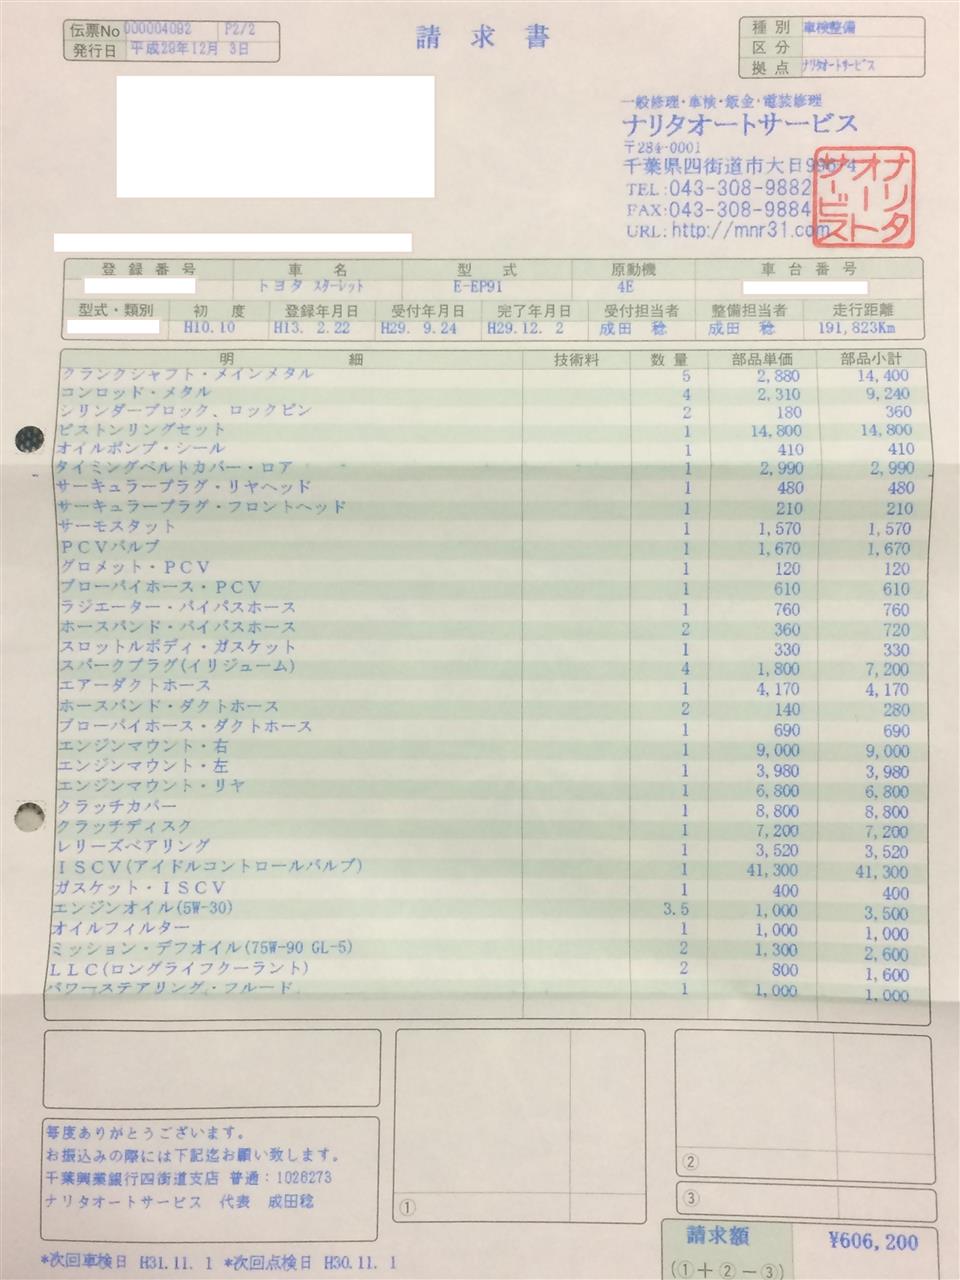 伝票No 000004092 P2/2
発行日 平成29年12月 3日
請求書
種別 車検整備
区分
拠点 ナリタオートサービス
一般修理・車検・鈑金・電装修理
ナリタオートサービス
〒284-0001
千葉県四街道市大日996-4
TEL:043-308-9882
FAX:043-308-9884
URL:http://mnr31.com
ナリタオートサービス
登録番号 車名 型式 原動機 車台番号
トヨタ スターレット E-EP91 4E
型式・類別 初度 登録年月日 受付年月日 完了年月日 受付担当者 整備担当者 走行距離
H10.10 H13. 2.22 H29. 9.24 H29.12. 2 成田 稔 成田 稔 191,823Km
明細 技術料 数量 部品単価 部品小計
クランクシャフト・メインメタル 5 2,880 14,400
コンロッド・メタル 4 2,310 9,240
シリンダーブロック、ロックピン 2 180 360
ピストンリングセット 1 14,800 14,800
オイルポンプ・シール 1 410 410
タイミングベルトカバー・ロア 1 2,990 2,990
サーキュラープラグ・リヤヘッド 1 480 480
サーキュラープラグ・フロントヘッド 1 210 210
サーモスタット 1 1,570 1,570
PCVバルブ 1 1,670 1,670
グロメット・PCV 1 120 120
ブローバイホース・PCV 1 610 610
ラジエーター・バイパスホース 1 760 760
ホースバンド・バイパスホース 2 360 720
スロットルボディ・ガスケット 1 330 330
スパークプラグ(イリジューム) 4 1,800 7,200
エアーダクトホース 1 4,170 4,170
ホースバンド・ダクトホース 2 140 280
ブローバイホース・ダクトホース 1 690 690
エンジンマウント・右 1 9,000 9,000
エンジンマウント・左 1 3,980 3,980
エンジンマウント・リヤ 1 6,800 6,800
クラッチカバー 1 8,800 8,800
クラッチディスク 1 7,200 7,200
レリーズベアリング 1 3,520 3,520
ISCV(アイドルコントロールバルブ) 1 41,300 41,300
ガスケット・ISCV 1 400 400
エンジンオイル(5W-30) 3.5 1,000 3,500
オイルフィルター 1 1,000 1,000
ミッション・デフオイル(75W-90 GL-5) 2 1,300 2,600
LLC(ロングライフクーラント) 2 800 1,600
パワーステアリング・フルード 1 1,000 1,000
毎度ありがとうございます。
お振込みの際には下記迄お願い致します。
千葉興業銀行四街道支店 普通:1026273
ナリタオートサービス 代表 成田稔
①
②
③
*次回車検日 H31.11. 1 *次回点検日 H30.11. 1
請求額 ¥606,200
(①+②-③)